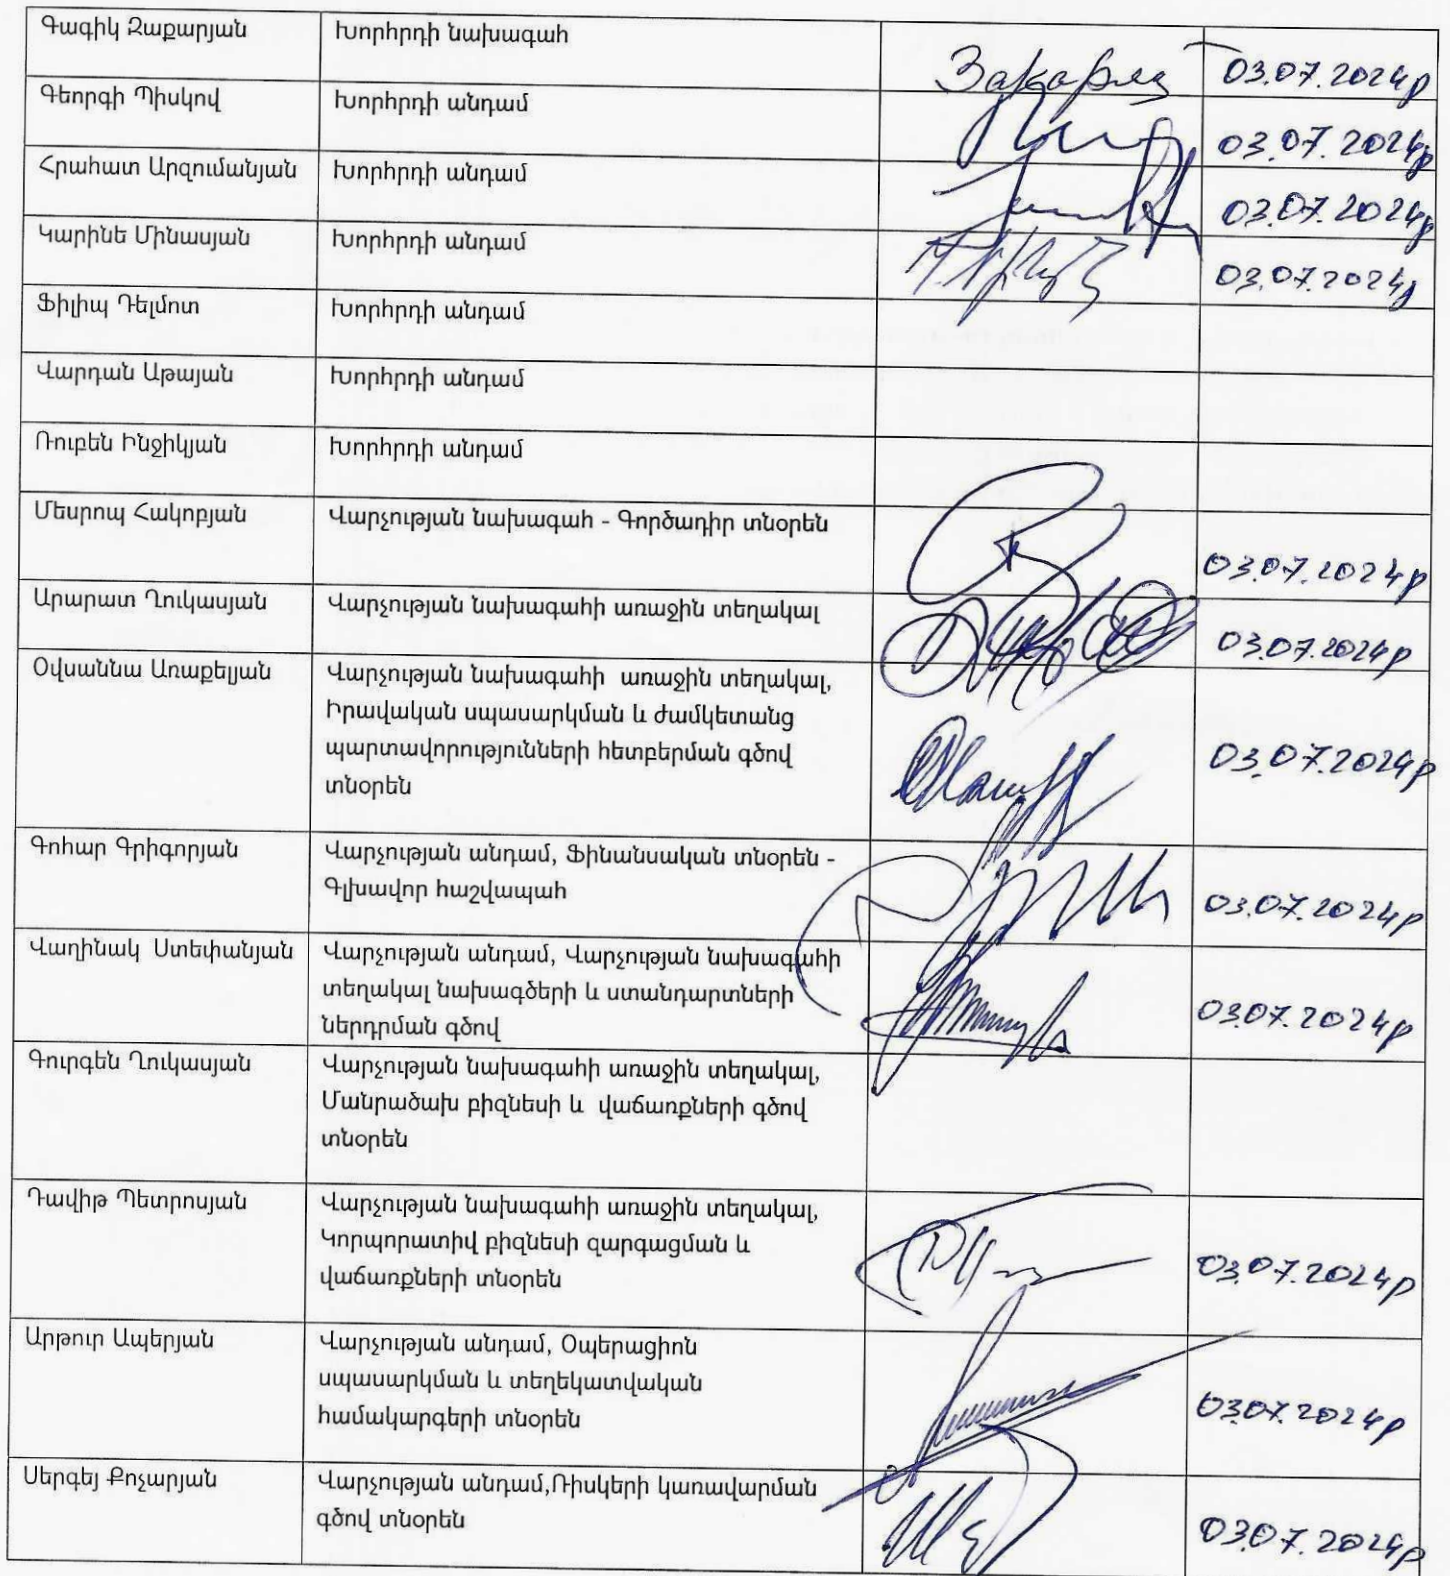 Գագիկ Զաքարյան Խորհրդի նախագահ 03.07.2024թ
Գեորգի Պիսկով Խորհրդի անդամ 03.07.2024թ
Հրահատ Արզումանյան Խորհրդի անդամ 03.07.2024թ
Կարինե Մինասյան Խորհրդի անդամ 03.07.2024թ
Ֆիլիպ Դելմոտ Խորհրդի անդամ
Վարդան Աթայան Խորհրդի անդամ
Ռուբեն Ինջիկյան Խորհրդի անդամ
Մեսրոպ Հակոբյան Վարչության նախագահ - Գործադիր տնօրեն 03.07.2024թ
Արարատ Ղուկասյան Վարչության նախագահի առաջին տեղակալ 03.07.2024թ
Օվսաննա Առաքելյան Վարչության նախագահի առաջին տեղակալ,
Իրավական սպասարկման և ժամկետանց
պարտավորությունների հետբերման գծով
տնօրեն
03.07.2024թ
Գոհար Գրիգորյան Վարչության անդամ, Ֆինանսական տնօրեն -
Գլխավոր հաշվապահ
03.07.2024թ
Վաղինակ Ստեփանյան Վարչության անդամ, Վարչության նախագահի
տեղակալ նախագծերի և ստանդարտների
ներդրման գծով
03.07.2024թ
Գուրգեն Ղուկասյան Վարչության նախագահի առաջին տեղակալ,
Մանրածախ բիզնեսի և վաճառքների գծով
տնօրեն
Դավիթ Պետրոսյան Վարչության նախագահի առաջին տեղակալ,
Կորպորատիվ բիզնեսի զարգացման և
վաճառքների տնօրեն
03.07.2024թ
Արթուր Ապերյան Վարչության անդամ, Օպերացիոն
սպասարկման և տեղեկատվական
համակարգերի տնօրեն
03.07.2024թ
Սերգեյ Քոչարյան Վարչության անդամ,Ռիսկերի կառավարման
գծով տնօրեն
03.07.2024թ